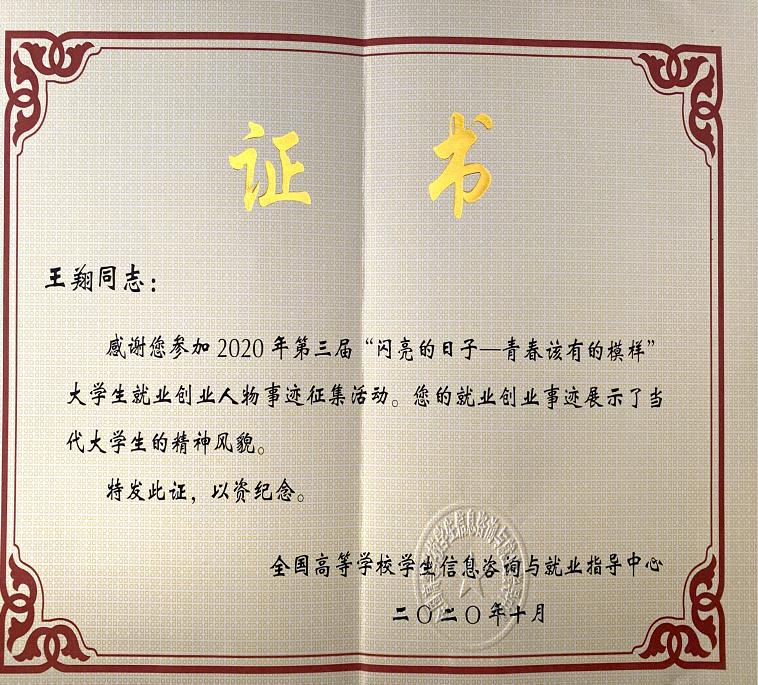 证 书
王翔同志：
感谢您参加2020年第三届“闪亮的日子—青春该有的模样”
大学生就业创业人物事迹征集活动。您的就业创业事迹展示了当
代大学生的精神风貌。
特发此证，以资纪念。
全国高等学校学生信息咨询与就业指导中心
二〇二〇年十月